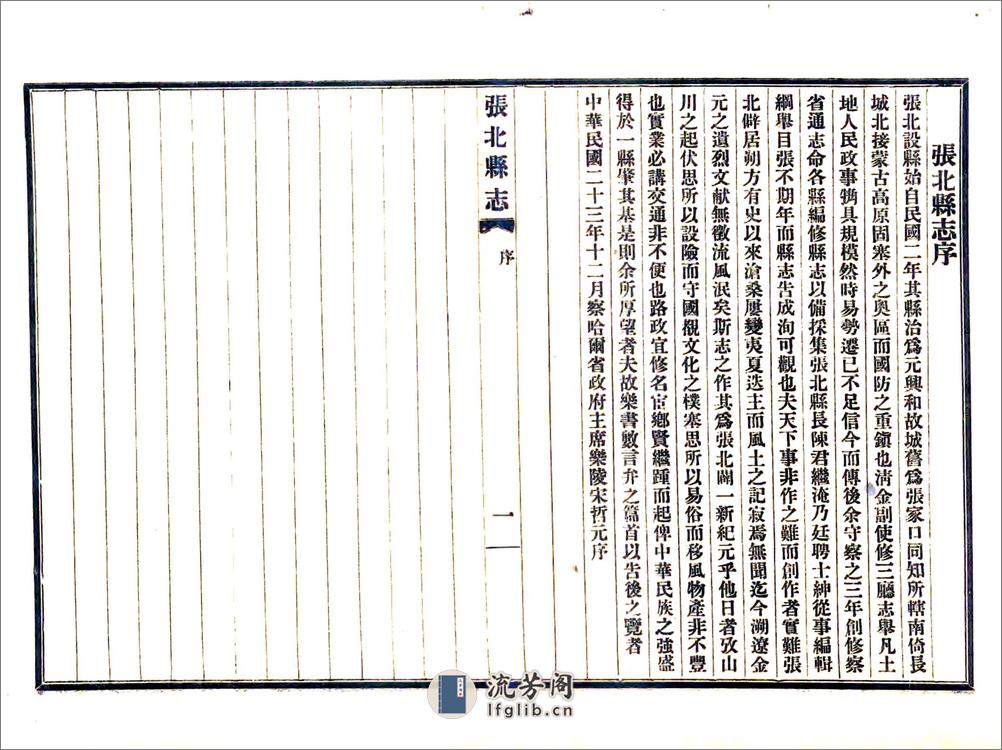 張北縣志序
張北設縣始自民國二年其縣治爲元興和故城舊爲張家口同知所轄南倚長
城北接蒙古高原固塞外之奧區而國防之重鎮也淸金副使修三廳志舉凡土
地人民政事犓具規模然時易勢遷已不足信今而傳後余守察之三年創修察
省通志命各縣編修縣志以備採集張北縣長陳君繼淹乃廷聘士紳從事編輯
綱舉目張不期年而縣志告成洵可觀也夫天下事非作之難而創作者實難張
北僻居朔方有史以來滄桑屢變夷夏迭主而風土之記寂焉無聞迄今溯遼金
元之遺烈文献無徵流風泯矣斯志之作其爲張北闢一新紀元乎他日者攷山
川之起伏思所以設險而守國覩文化之樸塞思所以易俗而移風物產非不豐
也實業必講交通非不便也路政宜修名宦鄕賢繼踵而起俾中華民族之強盛
得於一縣肇其基是則余所厚望者夫故樂書數言弁之篇首以告後之覽者
中華民國二十三年十二月察哈爾省政府主席樂陵宋哲元序
張北縣志
序
一
流芳阁
lfglib.cn